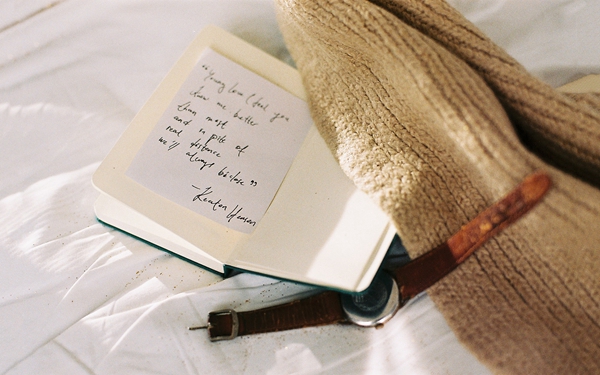 "Young love I feel you
show me better
than most
and in spite of
real distance
we'll always be close"
- Keaton Henson